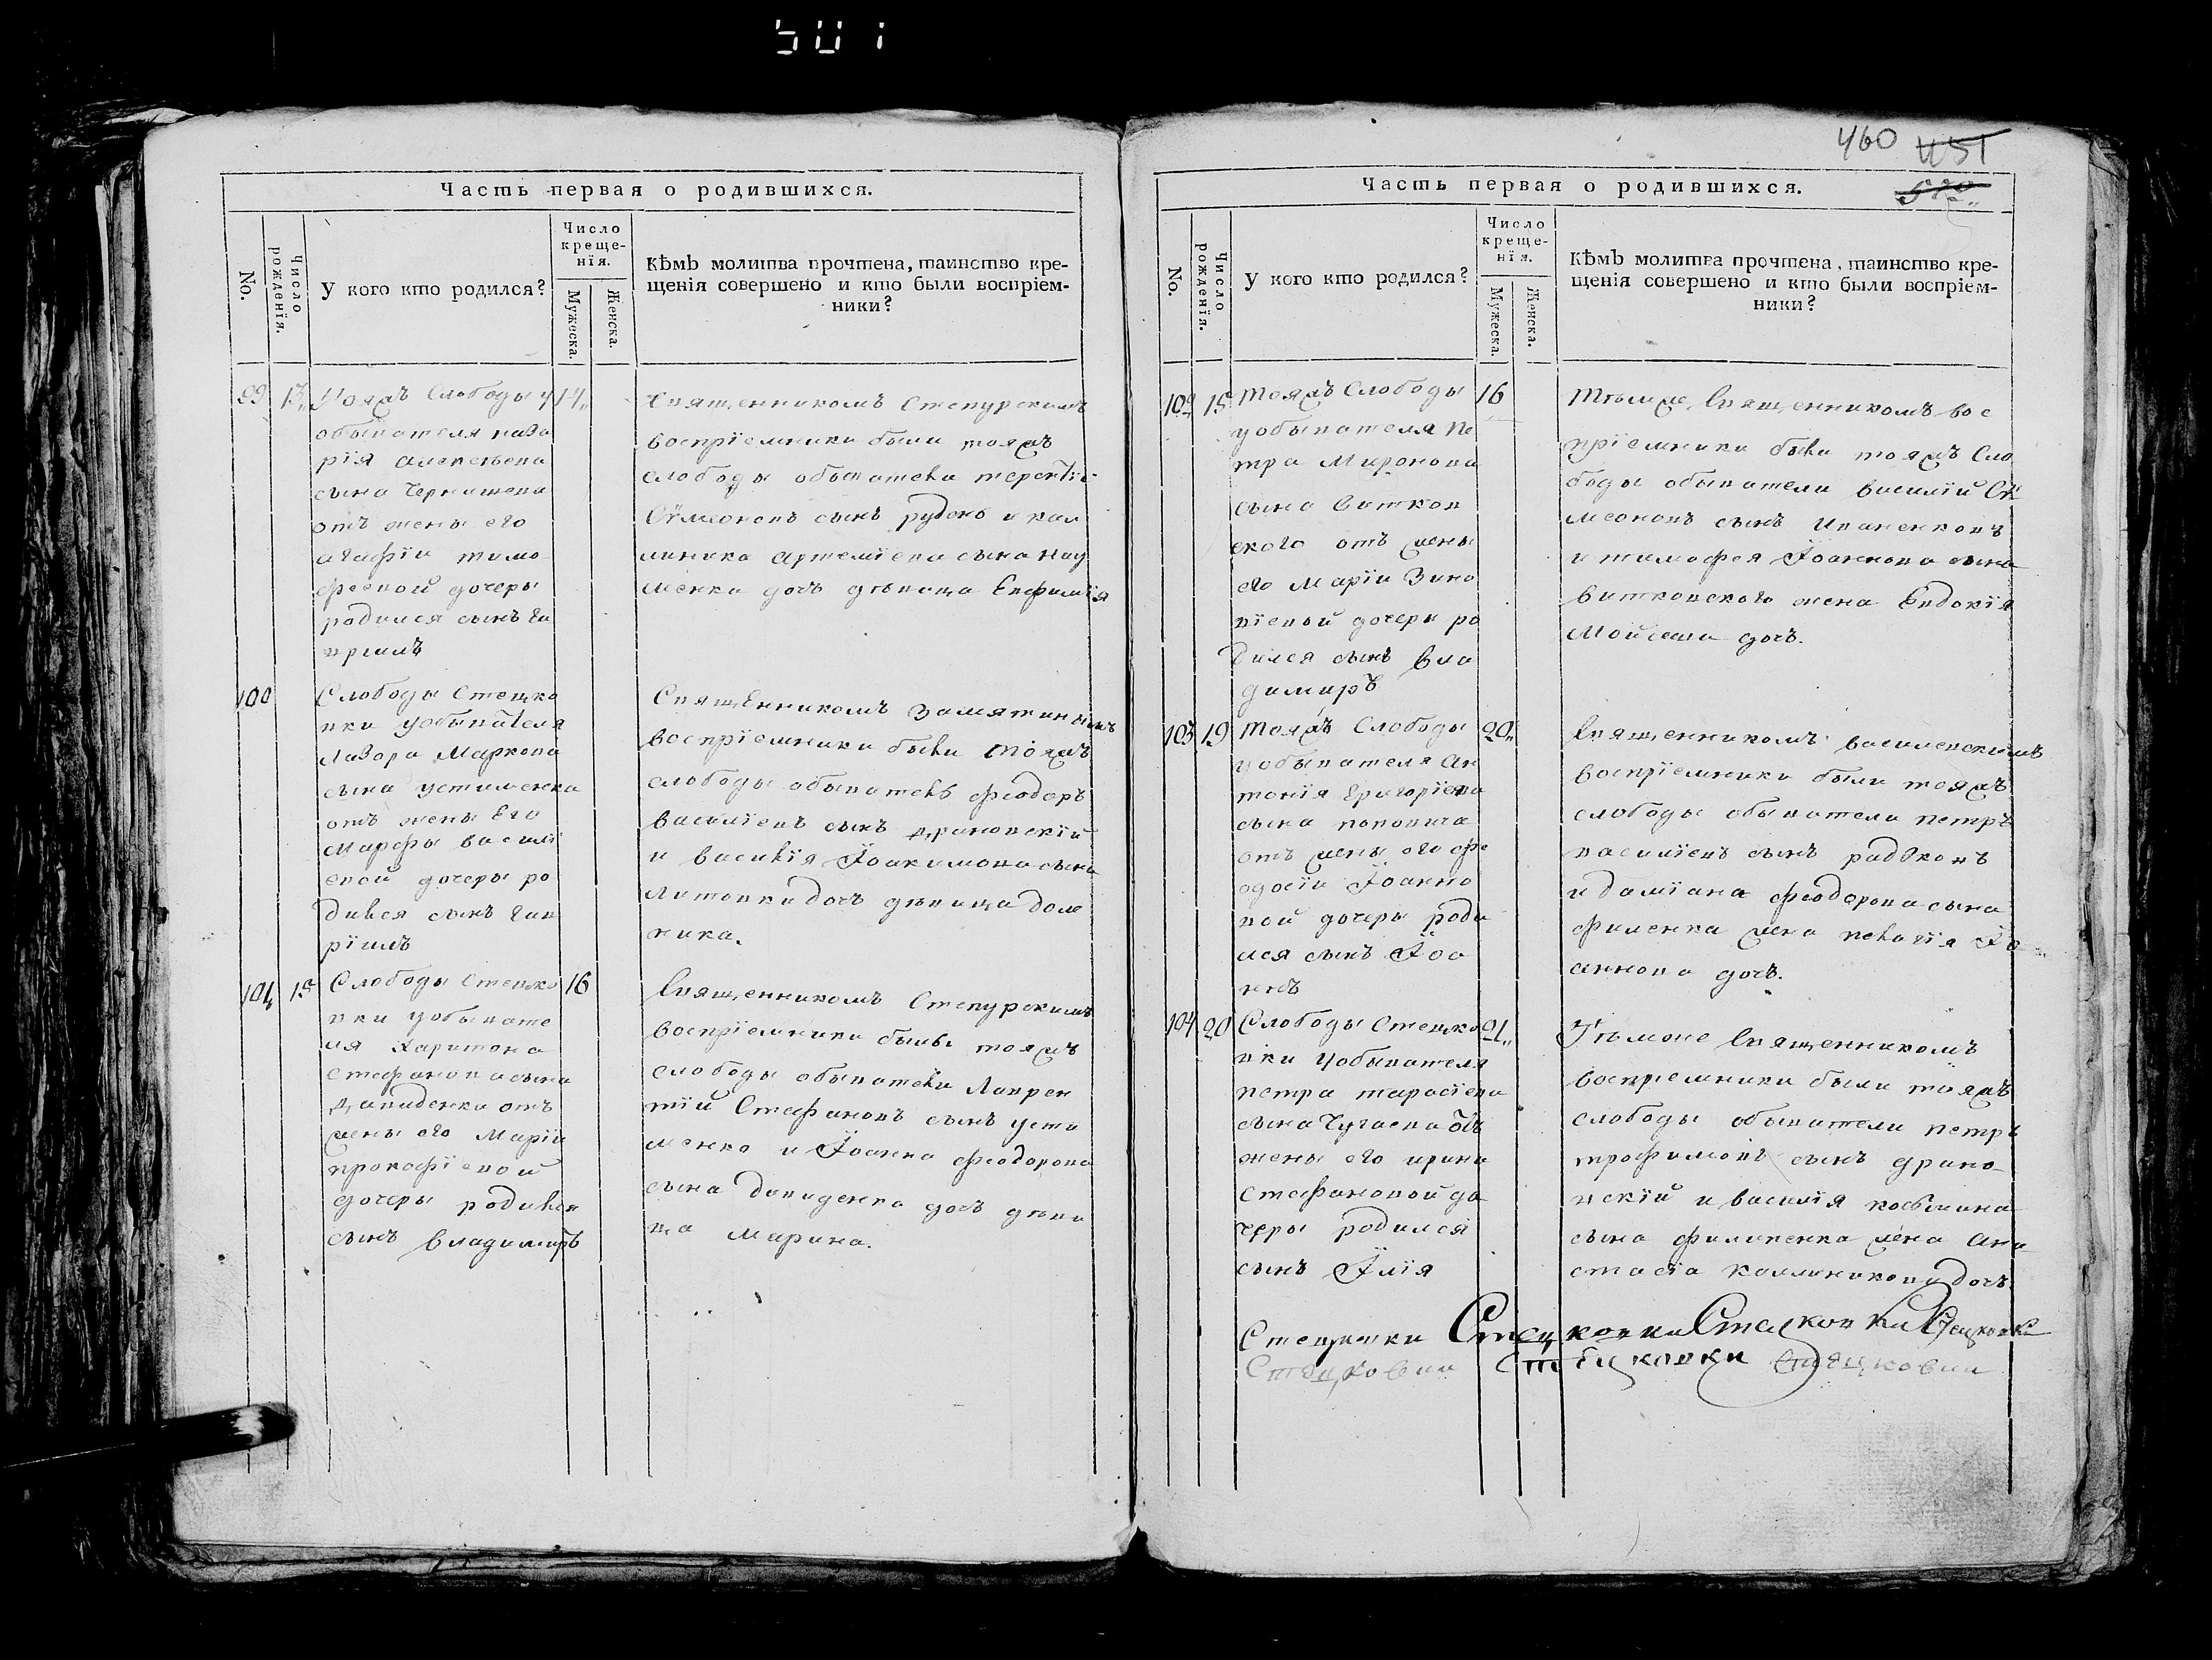 501
Часть первая о родившихся.
No.
Число рожденїя.
У кого кто родился?
Число
креще-
нїя.
Мужеска.
Женска.
Кѣмъ молитва прочтена, таинство кре-
щенїя совершено и кто были воспрїем-
ники?
99 13 Тояжъ Слободы у 14
обывателя наза
рїя алексѣева
сына Чернишева
отъ жены его
агафїи тимо
феевой дочеры
родился сынъ га
вриилъ
Священникомъ Степурскимъ
воспрїемники были тояжъ
слободы обыватели терентїй
Сѵмеоновъ сынъ рудень и кал
линика артемїева сына нау
менка дочь дѣвица Евфимїя
100
Слободы Стецко
вки уобывателя
Лазора Маркова
сына устименка
отъ жены Его
Марфы василї
евой дочеры ро
дился сынъ гав
рїилъ
Священникомъ Замятинымъ
воспрїемники были тояжъ
слободы обыватель феодоръ
василїевъ сынъ драновскїй
и василїя Їоакимова сына
Литовки дочь дѣвица дом
ника.
101 15 Слободы Стецко 16
вки уобывате
ля Харитона
стефанова сына
давиденка отъ
жены его Марїи
прокофїевой
дочеры родился
сынъ владимиръ
Священникомъ Степурскимъ
воспрїемники были тояжъ
слободы обыватели Лаврен
тїй Стефановъ сынъ усти
менко и Їоанна феодорова
сына давиденка дочь дѣви
ца Марина.
460 451
Часть первая о родившихся.
No.
Число рожденїя.
У кого кто родился?
Число
креще-
нїя.
Мужеска.
Женска.
Кѣмъ молитва прочтена, таинство кре-
щенїя совершено и кто были воспрїем-
ники?
102 15 Тояжъ Слободы 16
уобывателя пе
тра Миронова
сына Витков
ского отъ жены
его Марїи Зино
вїевой дочери ро
дился сынъ вла
димиръ
Тѣмже Священникомъ вос
прїемники были тояжъ Сло
боды обыватели василїй Сѵ
меоновъ сынъ Иваненковъ
и тимофея Їоаннова сына
витковского жена Евдокїя
Мойсеева дочь.
103 19 Тояжъ Слободы 20
уобывателя Ан
тонїя григорїева
сына поповича
отъ жены его фе
одосїи Їоанно
вой дочеры роди
лся сынъ Їоа
ннъ
Священникомъ василевскимъ
воспрїемники были тояжъ
слободы обыватели петръ
василїевъ сынъ радковъ
и дамїана феодорова сына
филенка жена пелагїя Їо
аннова дочь.
104 20 Слободы Стецко 21
вки уобывателя
петра тарасїева
сына Чугаева отъ
жены его ирины
Стефановой до
черы родился
сынъ Їлїя
Тѣмоне Священникомъ
воспрїемники были тояжъ
слободы обыватели петръ
трофимовъ сынъ драно
вскїй и василїя косьмина
сына филипенка жена Ана
стасїа каллиникова дочь
Стецковки Стецковки Стецковки Стецковки
Стецковки Стецковки Стецковки